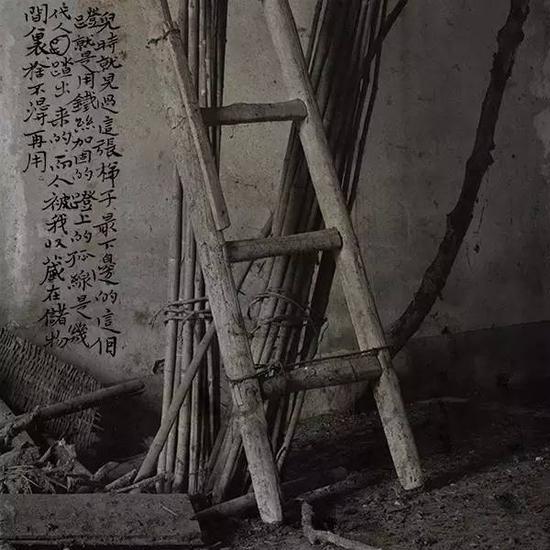 兒時就見過這張梯子最下邊的這個
蹬就是用鐵絲加固的蹬上的弧線是幾
代人踏出来的而今被我収藏在儲物
間裏捨不得再用